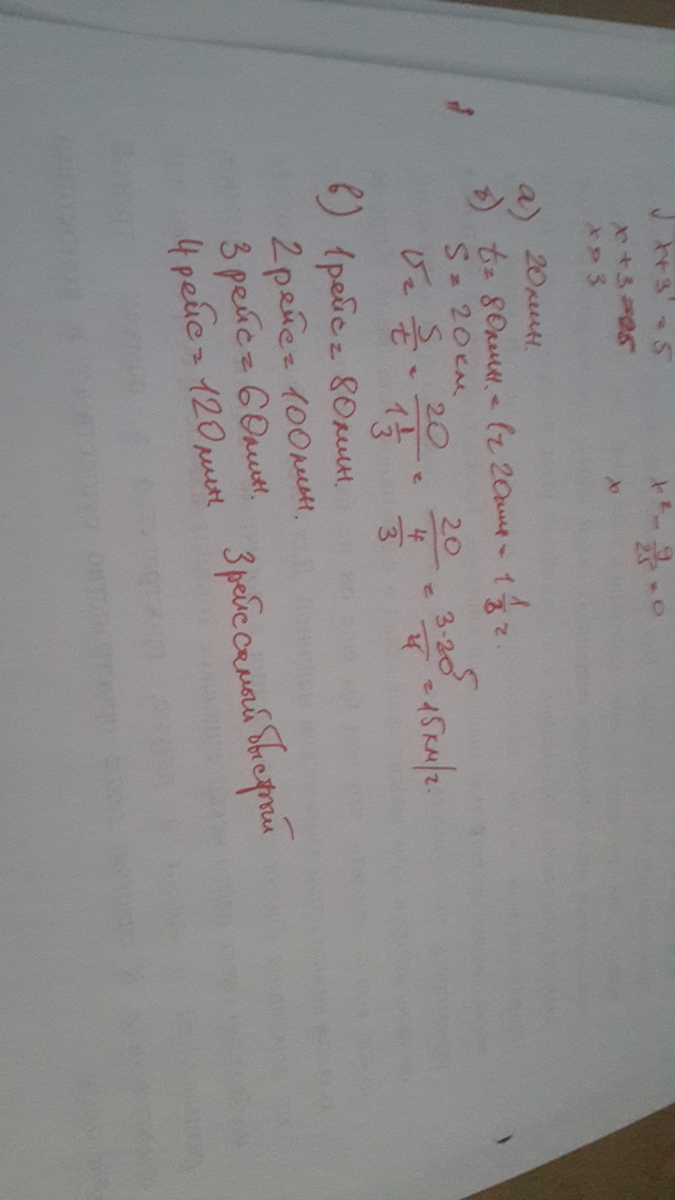 x + 3 = 5
x² - 9/25 = 0
x + 3 = 25
x
x = 3
а) 20 мин.
б) t = 80 мин. = 1ч 20 мин = 1 1/3 ч.
S = 20 км
V = S/t = 20/(1 1/3) = 20/(4/3) = 3·20/4 = 15 км/ч.
в) 1 рейс = 80 мин.
2 рейс = 100 мин.
3 рейс = 60 мин. 3 рейс самый быстрый
4 рейс = 120 мин